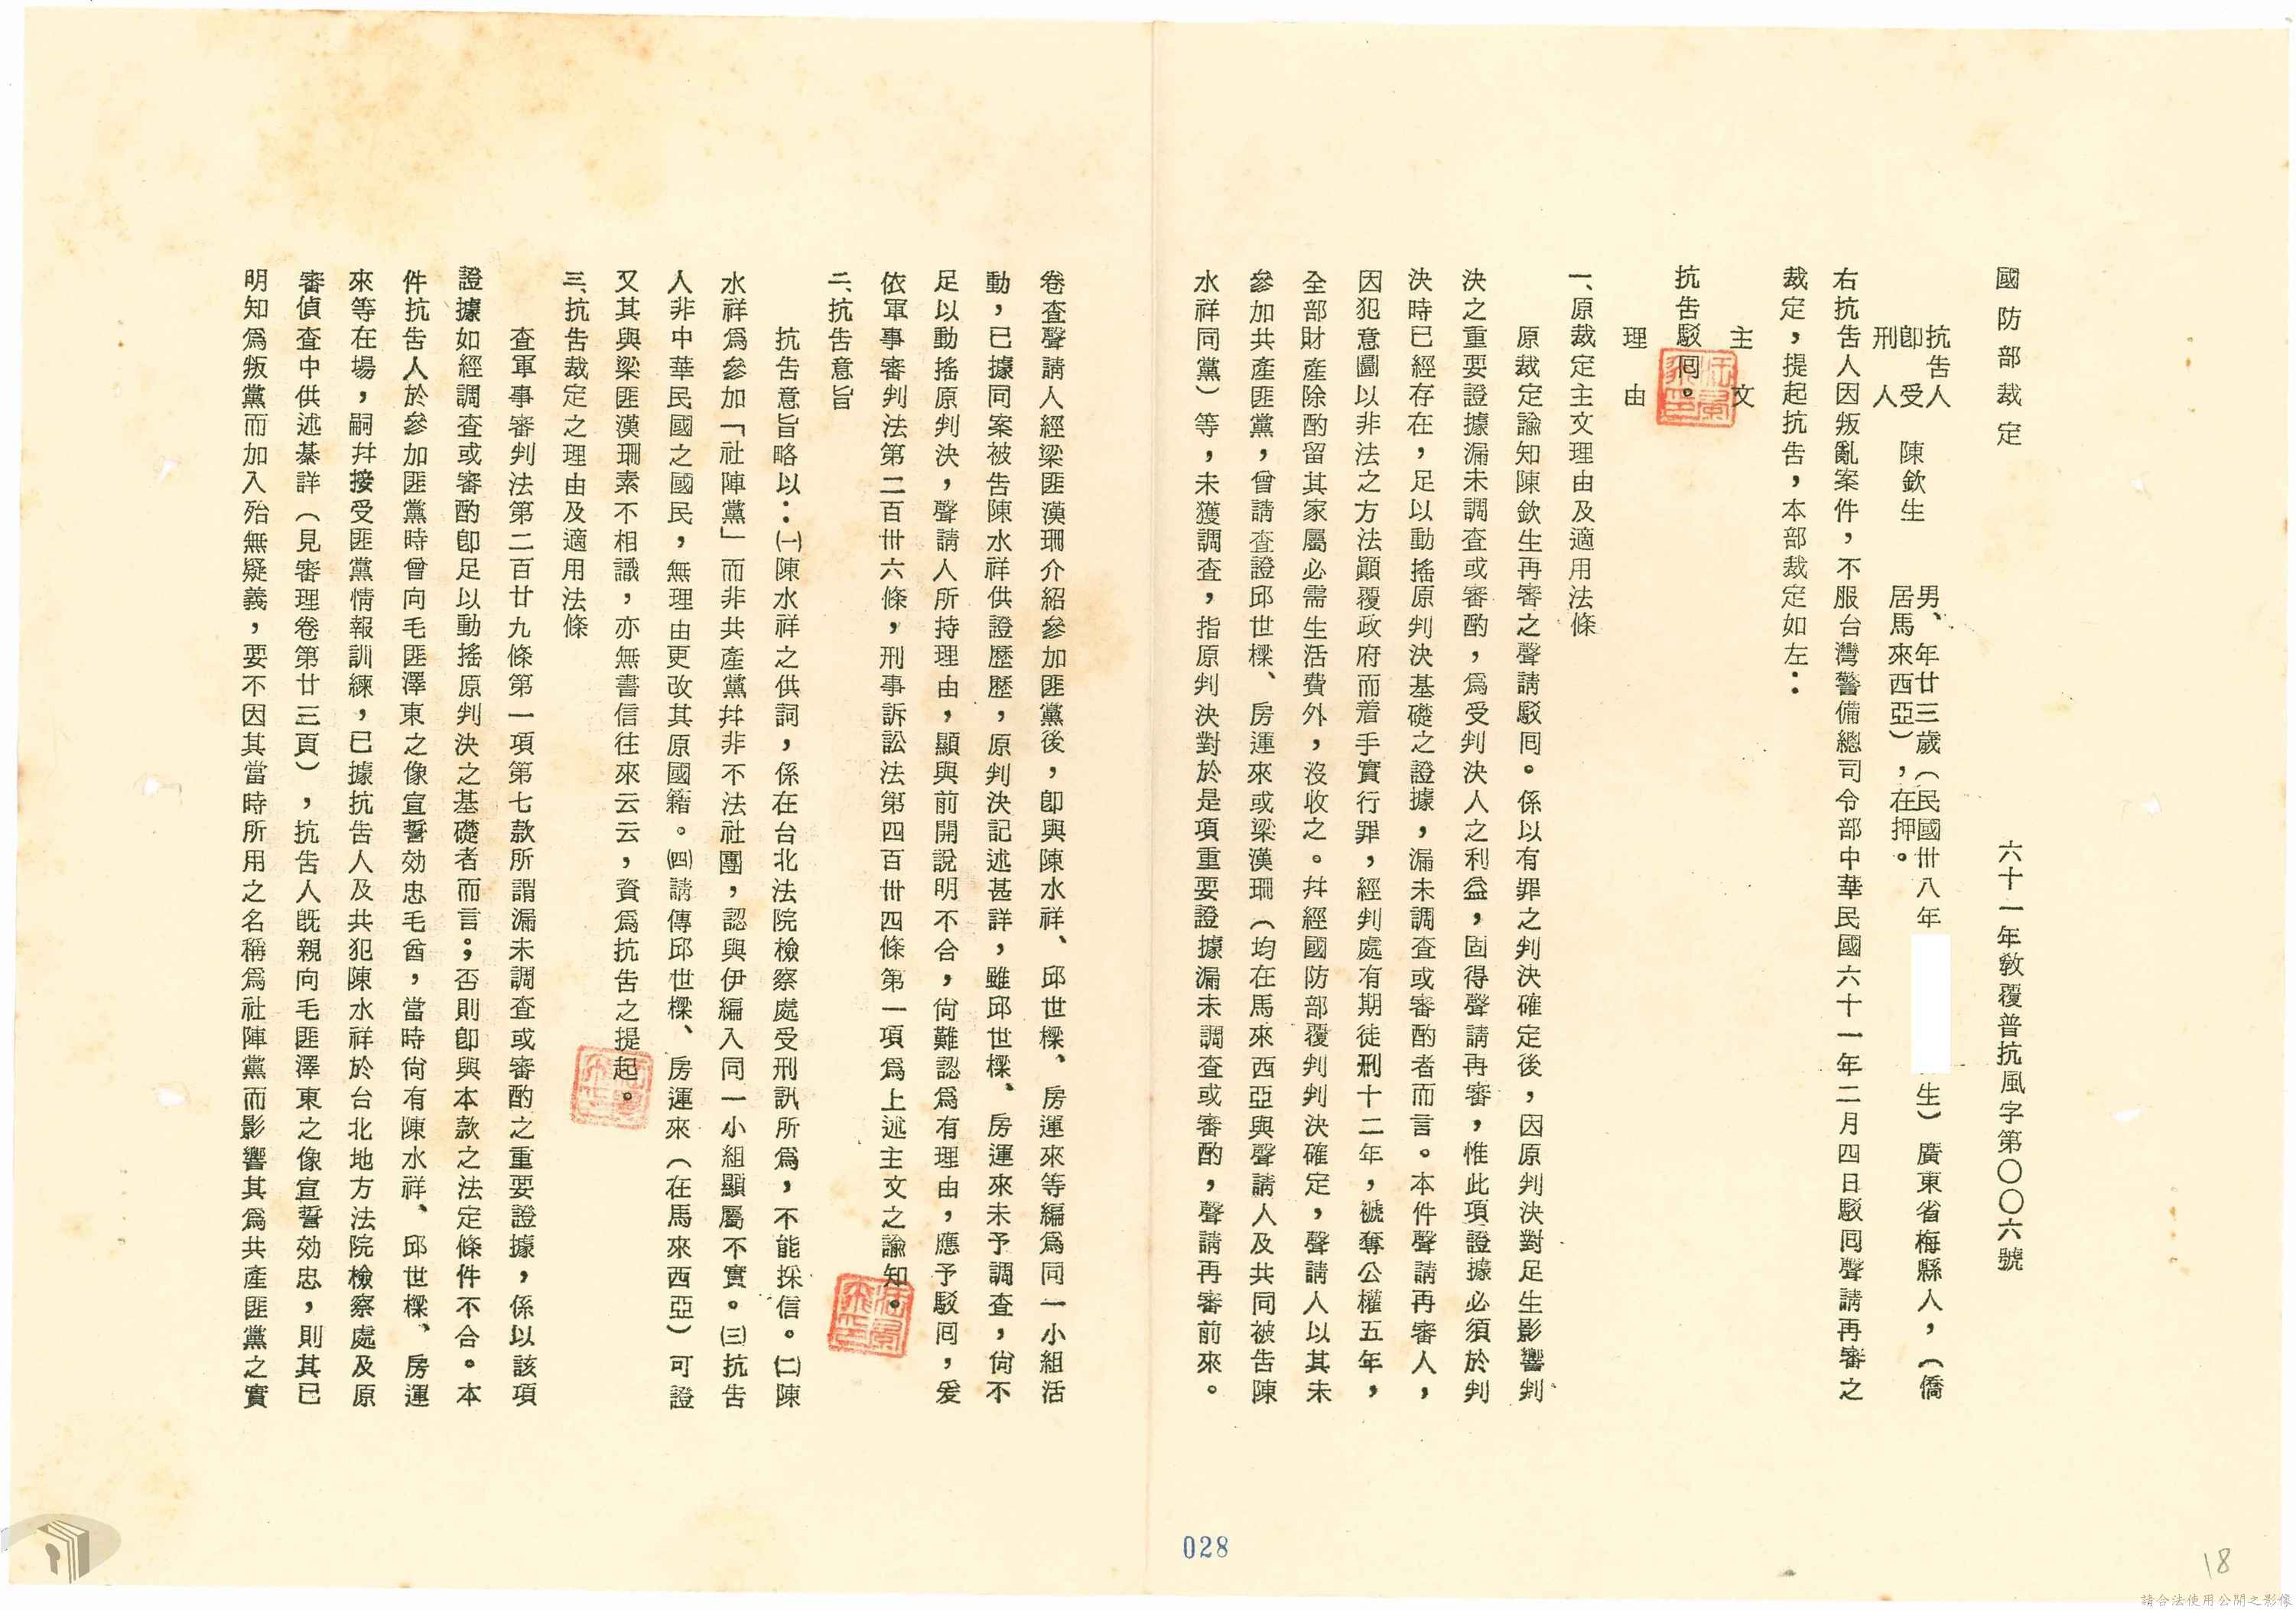 國防部裁定
六十一年教覆普抗風字第〇〇六號
抗告人
即受
刑人
陳欽生
男、年廿三歲（民國卅八年
生）廣東省梅縣人，（僑
居馬來西亞），在押。
右抗告人因叛亂案件，不服台灣警備總司令部中華民國六十一年二月四日駁囘聲請再審之
裁定，提起抗告，本部裁定如左：
主文
抗告駁囘。
理由
一、原裁定主文理由及適用法條
原裁定諭知陳欽生再審之聲請駁囘。係以有罪之判決確定後，因原判決對足生影響判
決之重要證據漏未調查或審酌，爲受判決人之利益，固得聲請再審，惟此項證據必須於判
決時已經存在，足以動搖原判決基礎之證據，漏未調查或審酌者而言。本件聲請再審人，
因犯意圖以非法之方法顚覆政府而着手實行罪，經判處有期徒刑十二年，褫奪公權五年，
全部財產除酌留其家屬必需生活費外，沒收之。幷經國防部覆判判決確定，聲請人以其未
參加共產匪黨，曾請查證邱世樑、房運來或梁漢珊（均在馬來西亞與聲請人及共同被告陳
水祥同黨）等，未獲調查，指原判決對於是項重要證據漏未調查或審酌，聲請再審前來。
卷查聲請人經梁匪漢珊介紹參加匪黨後，卽與陳水祥、邱世樑、房運來等編爲同一小組活
動，已據同案被告陳水祥供證歷歷，原判決記述甚詳，雖邱世樑、房運來未予調查，尙不
足以動搖原判決，聲請人所持理由，顯與前開說明不合，尙難認爲有理由，應予駁囘，爰
依軍事審判法第二百卅六條，刑事訴訟法第四百卅四條第一項爲上述主文之諭知。
二、抗告意旨
抗告意旨略以：㈠陳水祥之供詞，係在台北法院檢察處受刑訊所爲，不能採信。㈡陳
水祥爲參加「社陣黨」而非共產黨幷非不法社團，認與伊編入同一小組顯屬不實。㈢抗告
人非中華民國之國民，無理由更改其原國籍。㈣請傳邱世樑、房運來（在馬來西亞）可證
又其與梁匪漢珊素不相識，亦無書信往來云云，資爲抗告之提起。
三、抗告裁定之理由及適用法條
查軍事審判法第二百廿九條第一項第七款所謂漏未調查或審酌之重要證據，係以該項
證據如經調查或審酌卽足以動搖原判決之基礎者而言；否則卽與本款之法定條件不合。本
件抗告人於參加匪黨時曾向毛匪澤東之像宣誓効忠毛酋，當時尙有陳水祥、邱世樑、房運
來等在場，嗣幷接受匪黨情報訓練，已據抗告人及共犯陳水祥於台北地方法院檢察處及原
審偵查中供述綦詳（見審理卷第廿三頁），抗告人旣親向毛匪澤東之像宣誓効忠，則其已
明知爲叛黨而加入殆無疑義，要不因其當時所用之名稱爲社陣黨而影響其爲共產匪黨之實
028
18
請合法使用公開之影像